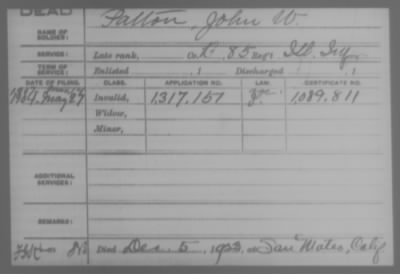 DEAD
NAME OF SOLDIER: Patton, John W.
SERVICE: Late rank, Co. K, 85 Reg't Ill. Inf.
TERM OF SERVICE: Enlisted , 1 Discharged , 1
DATE OF FILING. CLASS. APPLICATION NO. LAW. CERTIFICATE NO.
May 27 Invalid, 1,317.157 1,089.811
Widow,
Minor,
ADDITIONAL SERVICES:
REMARKS:
Died Dec. 5, 1923, at San Mateo, Calif